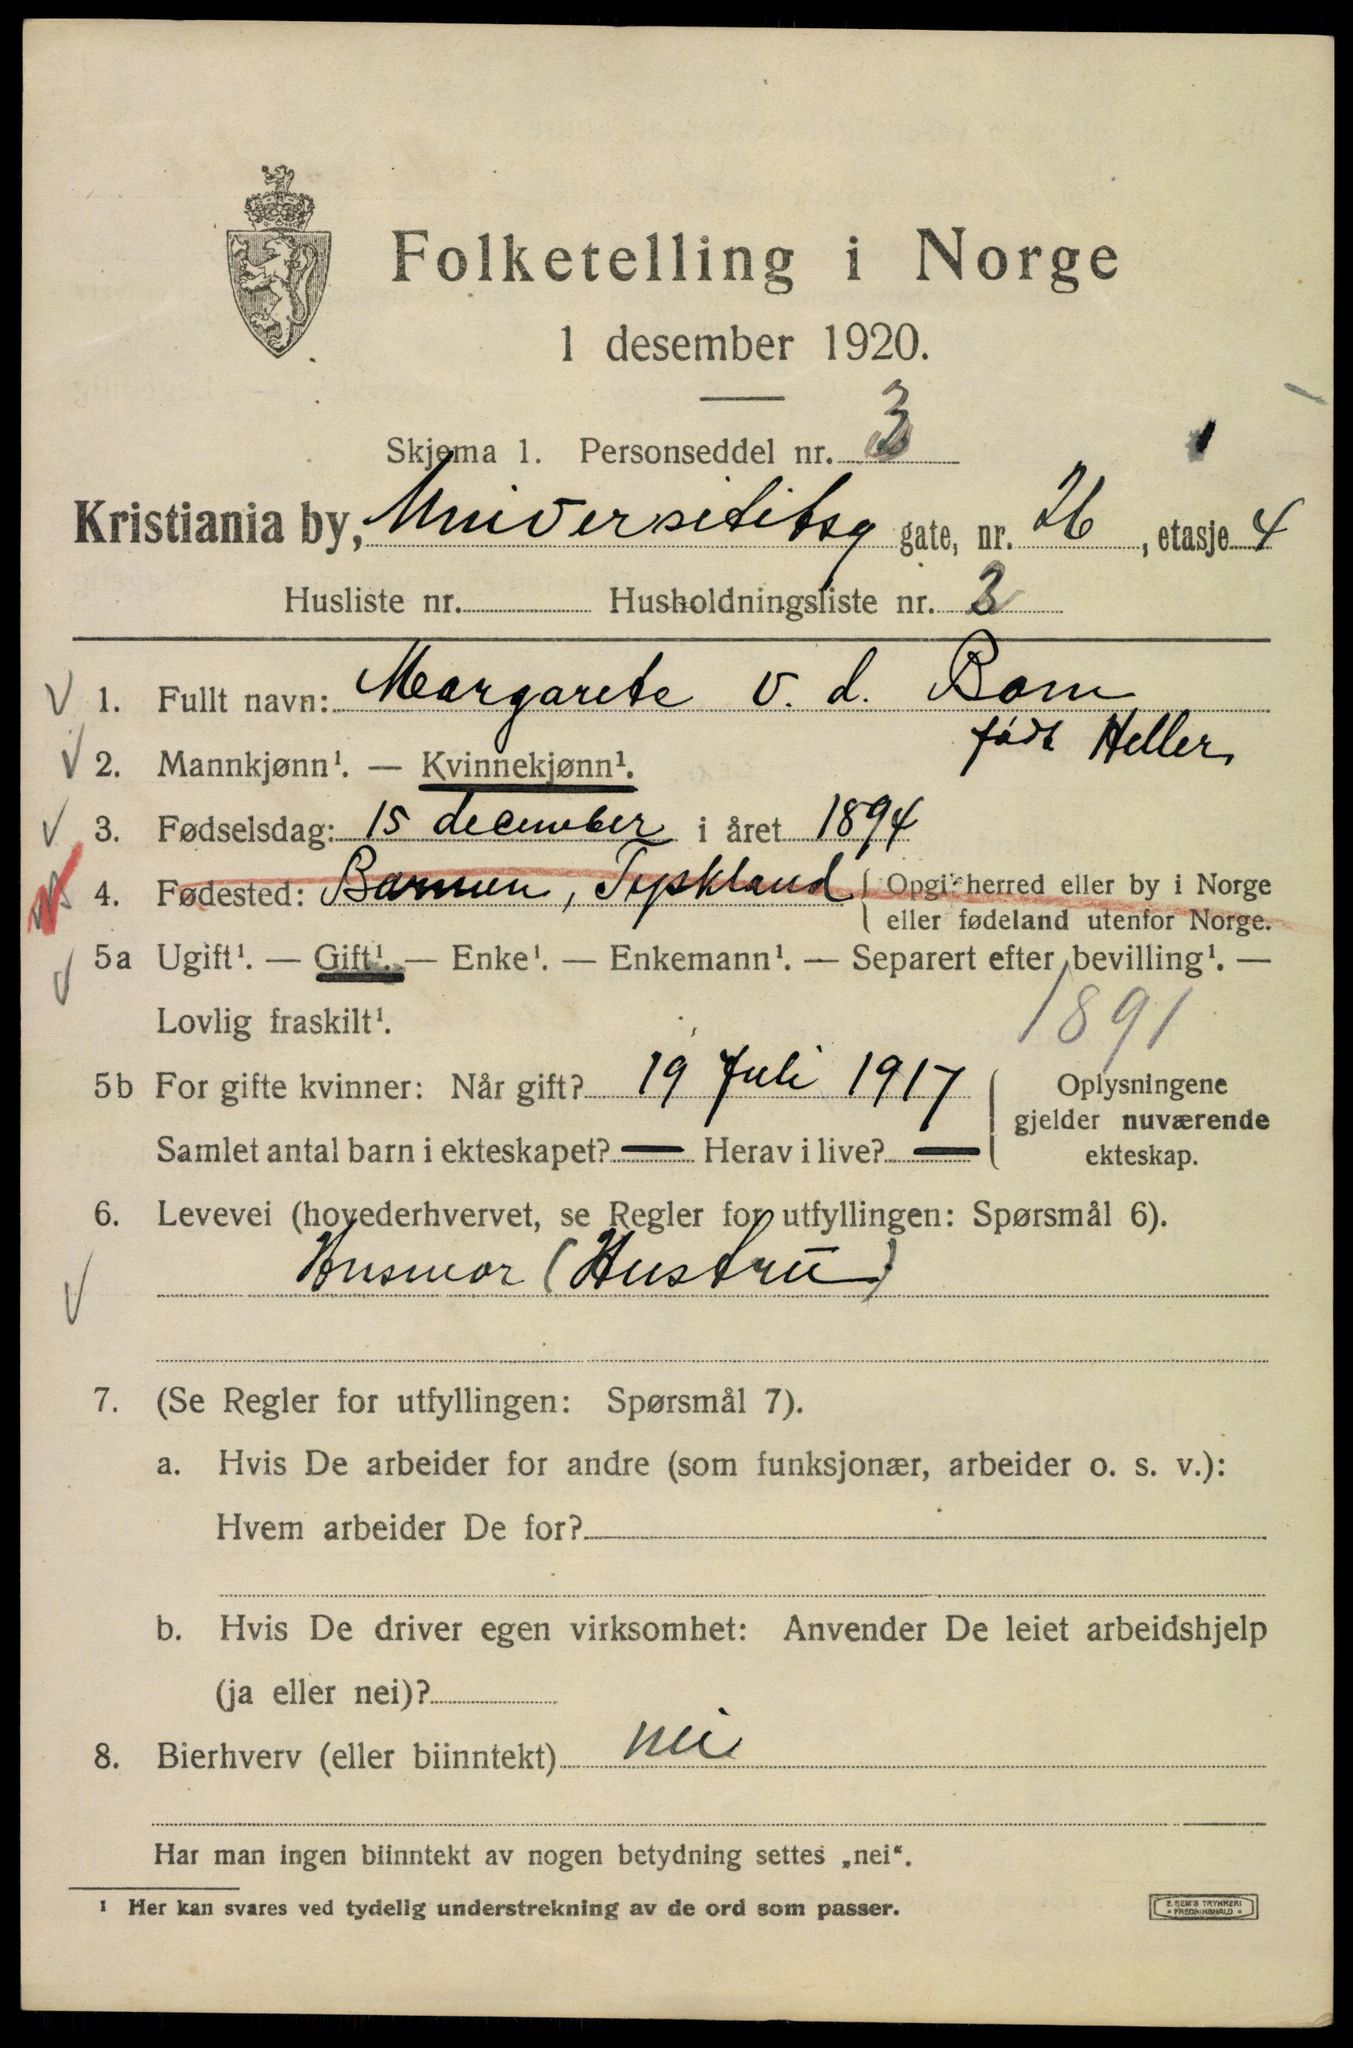 Folketelling i Norge
1 desember 1920.
Skjema 1. Personseddel nr. 3
1
Kristiania by, Universititsg gate, nr. 26, etasje 4
Husliste nr. Husholdningsliste nr. 3
1. Fullt navn: Margarete v. d. Bom
født Heller
2. Mannkjønn¹. — Kvinnekjønn¹.
3. Fødselsdag: 15 december i året 1894
4. Fødested: Barmen, Tyskland { Opgi herred eller by i Norge
eller fødeland utenfor Norge.
5a Ugift¹. — Gift¹. — Enke¹. — Enkemann¹. — Separert efter bevilling¹. —
Lovlig fraskilt¹.
1891
5b For gifte kvinner: Når gift? 19 Juli 1917 { Oplysningene
gjelder nuværende
Samlet antal barn i ekteskapet? — Herav i live? —
ekteskap.
6. Levevei (hovederhvervet, se Regler for utfyllingen: Spørsmål 6).
Husmor (Hustrū)
7. (Se Regler for utfyllingen: Spørsmål 7).
a. Hvis De arbeider for andre (som funksjonær, arbeider o. s. v.):
Hvem arbeider De for?
b. Hvis De driver egen virksomhet: Anvender De leiet arbeidshjelp
(ja eller nei)?
8. Bierhverv (eller biinntekt) nei
Har man ingen biinntekt av nogen betydning settes „nei“.
¹ Her kan svares ved tydelig understrekning av de ord som passer.
E. SEM'S TRYKKERI
FREDRIKSHALD